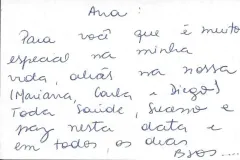 Ana:
Para você que é muito
especial na minha
vida, aliás na nossa
(Mariana, Carla e Diego)
Toda Saúde, Sucesso e
paz nesta data e
em todos, os dias
Bjos....